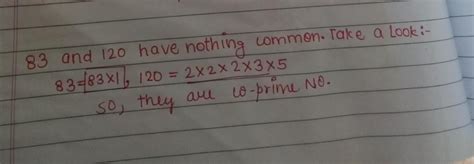 83 and 120 have nothing common. Take a look:-
83=|83×1|, 120 = 2×2×2×3×5
so, they are co-prime No.